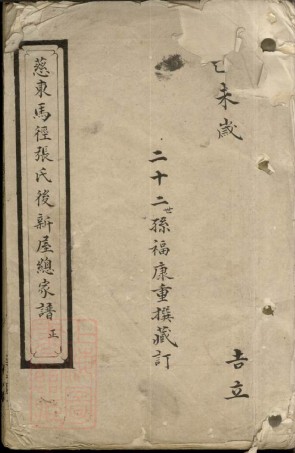 己未歲
吉立
二十二世孫福康重撰藏訂
慈東馬徑張氏後新屋總家譜 正